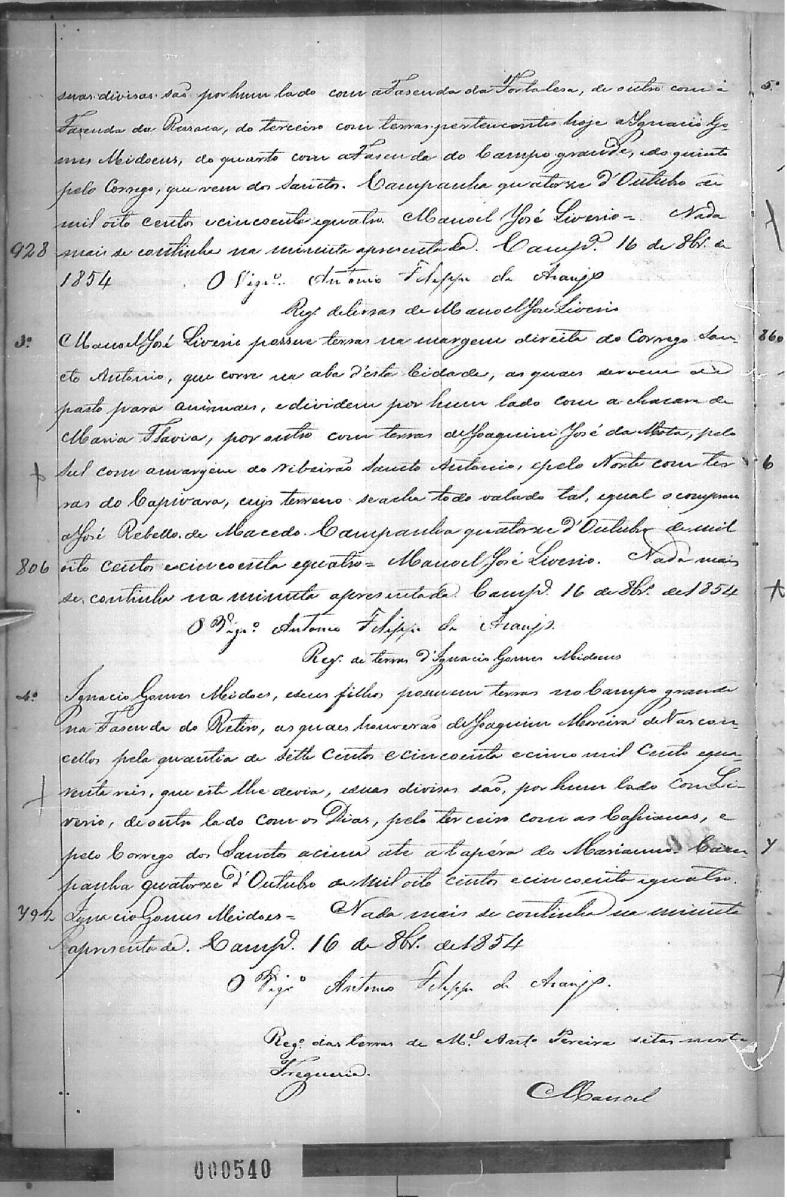 suas divisas são por hum lado com a Fazenda da Fortalesa, de outro com a
Fazenda da Ressaca, do terceiro com terras pertencentes hoje a Ignacio Go-
mes Midoens, do quarto com a Fasenda do Campo grande, e do quinto
pelo Corrego, que vem dos Sanctos. Campanha quatorze d'Outubro de
mil oito centos e cincoenta e quatro. Manoel José Liverio = Nada
928 mais se continha na minuta apresentada. Campª. 16 de 8br. de
1854 O Vigrº. Antonio Filippe de Araujo
Regº. de terras de Manoel Jose Liverio
3º. Manoel José Liverio possue terras na margem direita do Corrego San-
cto Antonio, que corre na aba d'esta Cidade, as quaes servem de
pasto para animaes, e dividem por hum lado com a chacara de
Maria Flavia, por outro com terras de Joaquim José da Mota, pelo
Sul com a margem do ribeirão Sancto Antonio, e pelo Norte com ter-
ras do Capivara, cujo terreno se acha todo valado tal, e qual o comprou
a José Rebello de Macedo. Campanha quatorze d'Outubro de mil
806 oito centos e cincoenta e quatro = Manoel José Liverio. Nada mais
se continha na minuta apresentada. Campª. 16 de 8br. de 1854
O Vigrº. Antonio Filippe de Araujo.
Regº. de terras d'Ignacio Gomes Midoens
4º. Ignacio Gomes Midoes, e seus filhos possuem terras no Campo grande
na Fasenda do Retiro, as quaes houverão de Joaquim Moreira de Vascon-
cellos pela quantia de sette centos e cincoenta e cinco mil cento e qua-
renta reis, que este lhe devia, e suas divisas são, por hum lado com Li-
verio, de outro lado com os Dias, pelo terceiro com as Caprianas, e
pelo Corrego dos Santos acima até a tapéra do Marianno. Cam-
panha quatorze d'Outubro de mil oito centos e cincoenta e quatro.
792 Ignacio Gomes Midoes = Nada mais se continha na minuta
apresentada. Campª. 16 de 8br. de 1854
O Vigrº Antonio Filippe de Araujo.
Regº. das terras de Mel. Antº. Pereira sitas nesta
Freguesia.
Manoel
5º
860
6
7
000540